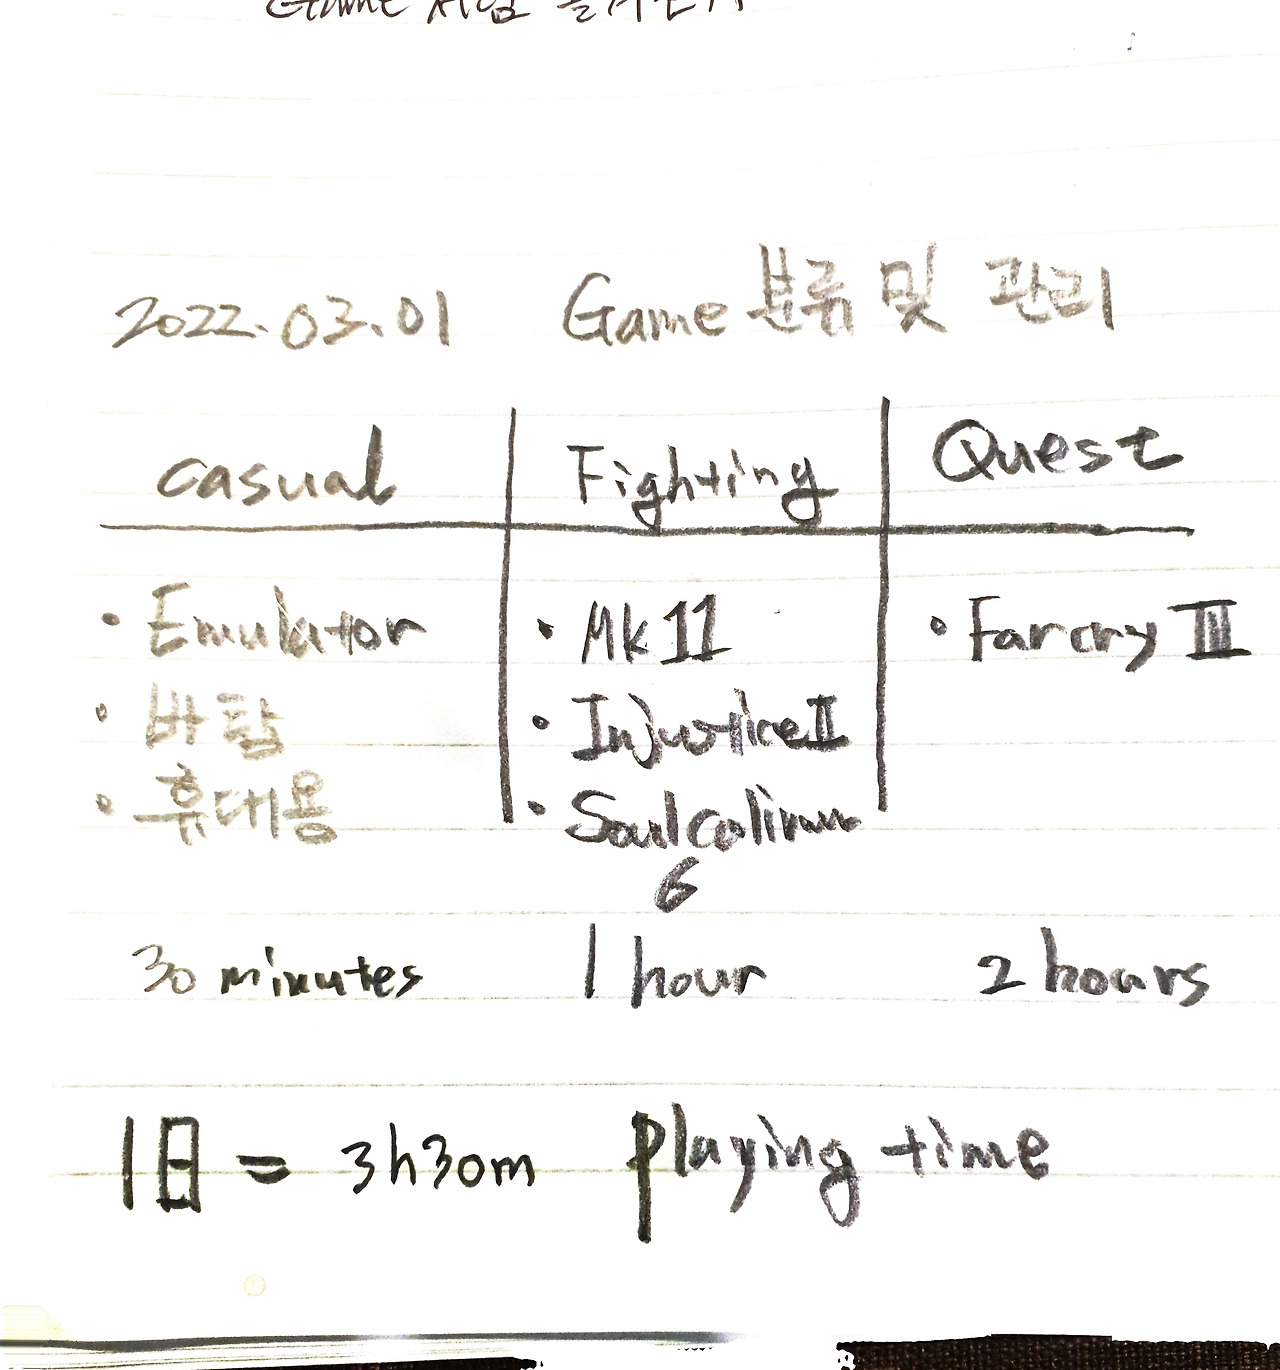 Game
2022.03.01 Game 분류 및 관리
casual Fighting Quest
· Emulator · Mk 11 · Farcry III
· 바탑 · Injustice II
· 휴대용 · Soulcalibur
6
30 minutes 1 hour 2 hours
1日 = 3h30m playing time